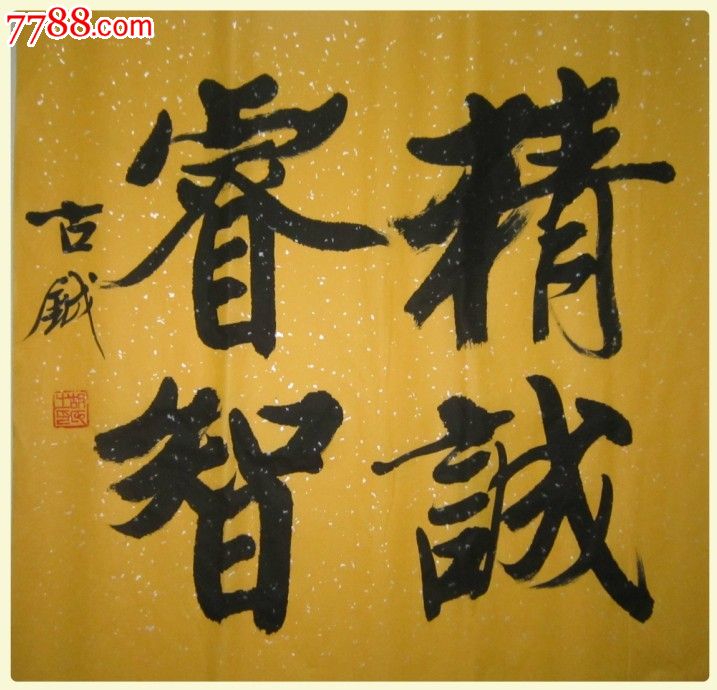 7788.com
精誠
睿智
古鉞